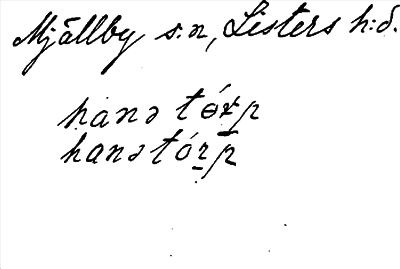 Mjällby s:n, Listers h:d.
hanə tórp
hanə tórp